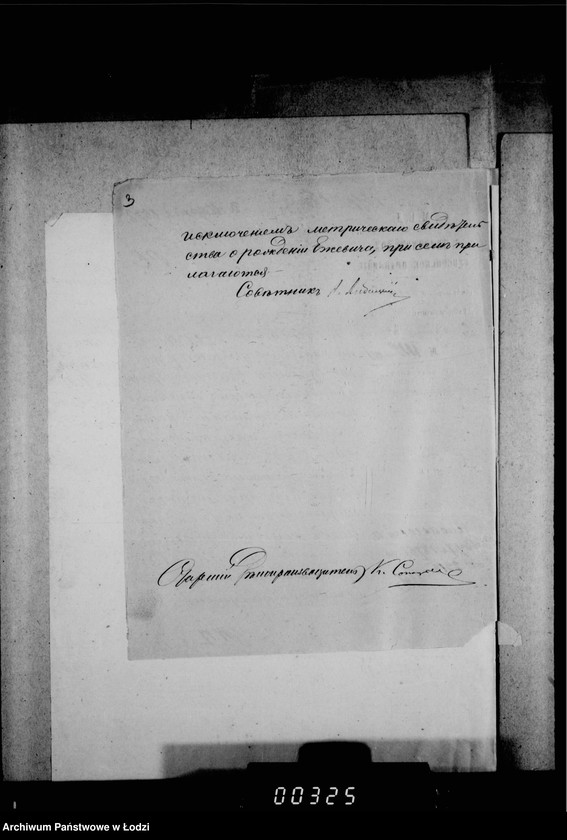 3
исключеніемъ метрическаго свидѣтель
ства о рожденіи Ежевича, при семъ при
лагаются
Совѣтникъ
Старшій Дѣлопроизводитель К.
00325
Archiwum Państwowe w Łodzi